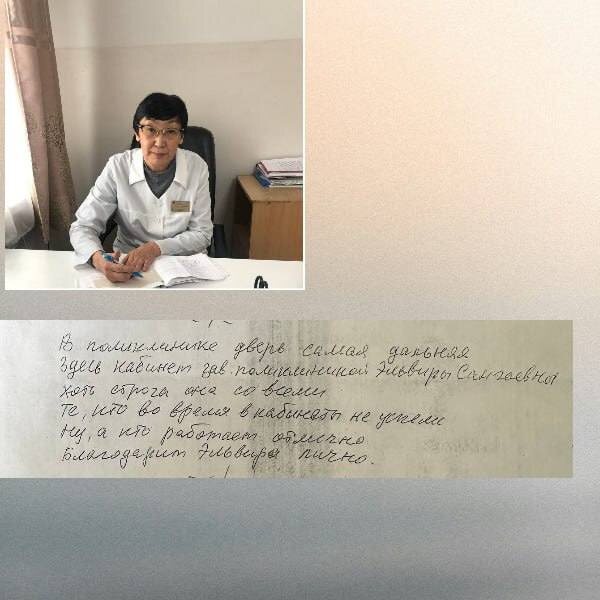 В поликлинике дверь самая дальняя
Здесь кабинет зав. поликлиникой Эльвиры Сангаевны
Хоть строга она со всеми
Те, кто во время в кабинеты не успели
Ну, а кто работает отлично
Благодарит Эльвира лично.